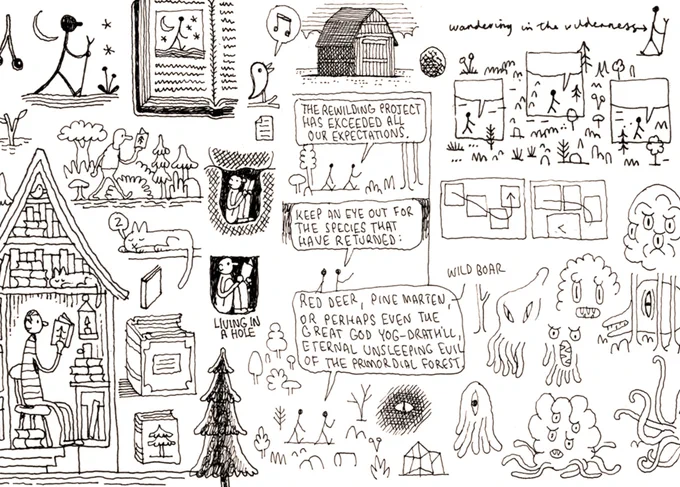 wandering in the wilderness
THE REWILDING PROJECT
HAS EXCEEDED ALL
OUR EXPECTATIONS.
KEEP AN EYE OUT FOR
THE SPECIES THAT
HAVE RETURNED:
WILD BOAR
RED DEER, PINE MARTEN,
OR PERHAPS EVEN THE
GREAT GOD YOG-DRATH'LL,
ETERNAL UNSLEEPING EVIL
OF THE PRIMORDIAL FOREST.
LIVING IN
A HOLE
Z